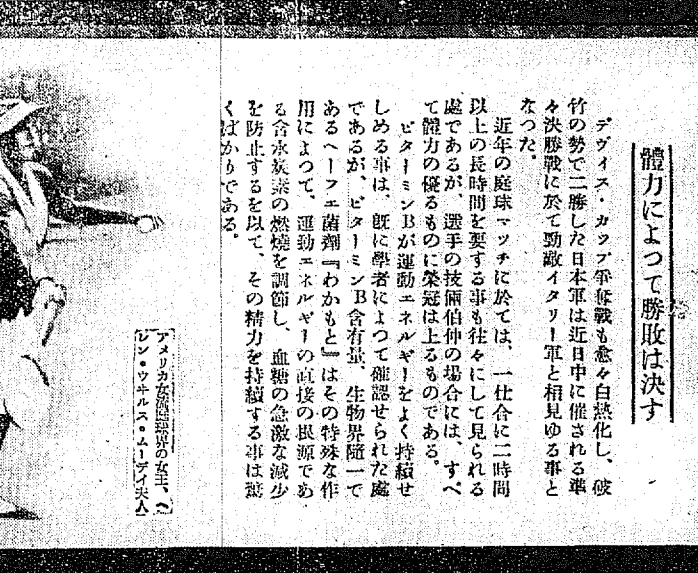 體力によつて勝敗は決す
デヴイス・カツプ爭奪戰も愈々白熱化し、破
竹の勢で二勝した日本軍は近日中に催される準
々決勝戰に於て勁敵イタリー軍と相見ゆる事と
なつた。
近年の庭球マツチに於ては、一仕合に二時間
以上の長時間を要する事も往々にして見られる
處であるが、選手の技倆伯仲の場合には、すべ
て體力の優るものに榮冠は上るものである。
ビターミンBが運動エネルギーをよく持續せ
しめる事は、既に學者によつて確認せられた處
であるが、ビターミンB含有量、生物界隨一で
あるヘーフエ菌劑『わかもと』はその特殊な作
用によつて、運動エネルギーの直接の根源であ
る含水炭素の燃燒を調節し、血糖の急激な減少
を防止するを以て、その精力を持續する事は驚
くばかりである。
アメリカ女流庭球界の女王、ヘ
レン・ウキルス・ムーデイ夫人